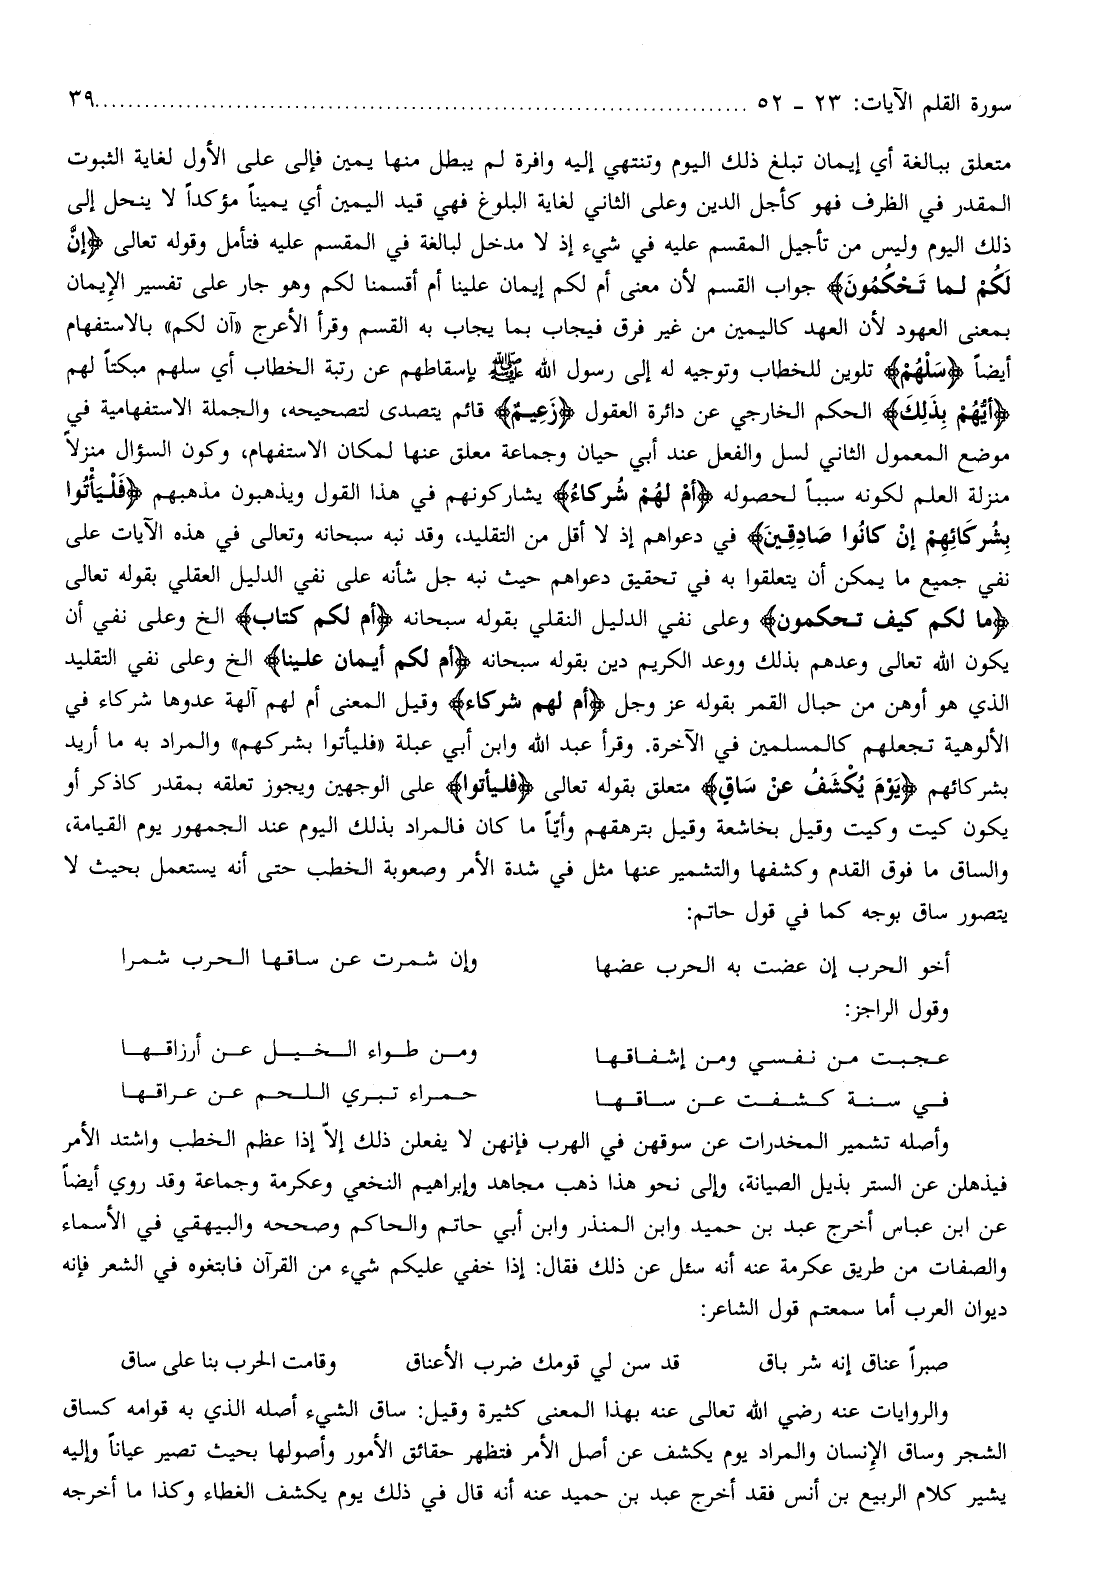 سورة القلم الآيات: ٢٣ - ٥٢ ............................................................................ ٣٩
متعلق ببالغة أي إيمان تبلغ ذلك اليوم وتنتهي إليه وافرة لم يبطل منها يمين فإلى على الأول لغاية الثبوت
المقدر في الظرف فهو كأجل الدين وعلى الثاني لغاية البلوغ فهي قيد اليمين أي يميناً مؤكداً لا ينحل إلى
ذلك اليوم وليس من تأجيل المقسم عليه في شيء إذ لا مدخل لبالغة في المقسم عليه فتأمل وقوله تعالى ﴿إنَّ
لَكُمْ لـما تَـحْكُمُونَ﴾ جواب القسم لأن معنى أم لكم إيمان علينا أم أقسمنا لكم وهو جار على تفسير الإيمان
بمعنى العهود لأن العهد كاليمين من غير فرق فيجاب بما يجاب به القسم وقرأ الأعرج «آن لكم» بالاستفهام
أيضاً ﴿سَلْهُمْ﴾ تلوين للخطاب وتوجيه له إلى رسول الله ﷺ بإسقاطهم عن رتبة الخطاب أي سلهم مبكتاً لهم
﴿أيُّهُمْ بِذَلِكَ﴾ الحكم الخارجي عن دائرة العقول ﴿زَعِيمٌ﴾ قائم يتصدى لتصحيحه، والجملة الاستفهامية في
موضع المعمول الثاني لسل والفعل عند أبي حيان وجماعة معلق عنها لمكان الاستفهام، وكون السؤال منزلاً
منزلة العلم لكونه سبباً لحصوله ﴿أمْ لهُمْ شُركاءُ﴾ يشاركونهم في هذا القول ويذهبون مذهبهم ﴿فَلْيَأْتُوا
بِشُركَائِهِمْ إنْ كانُوا صَادِقِينَ﴾ في دعواهم إذ لا أقل من التقليد، وقد نبه سبحانه وتعالى في هذه الآيات على
نفي جميع ما يمكن أن يتعلقوا به في تحقيق دعواهم حيث نبه جل شأنه على نفي الدليل العقلي بقوله تعالى
﴿ما لكم كيف تـحكمون﴾ وعلى نفي الدليل النقلي بقوله سبحانه ﴿أم لكم كتاب﴾ الخ وعلى نفي أن
يكون الله تعالى وعدهم بذلك ووعد الكريم دين بقوله سبحانه ﴿أم لكم أيمان علينا﴾ الخ وعلى نفي التقليد
الذي هو أوهن من حبال القمر بقوله عز وجل ﴿أم لهم شركاء﴾ وقيل المعنى أم لهم آلهة عدوها شركاء في
الألوهية تجعلهم كالمسلمين في الآخرة. وقرأ عبد الله وابن أبي عبلة «فليأتوا بشركهم» والمراد به ما أريد
بشركائهم ﴿يَوْمَ يُكْشَفُ عنْ سَاقٍ﴾ متعلق بقوله تعالى ﴿فليأتوا﴾ على الوجهين ويجوز تعلقه بمقدر كاذكر أو
يكون كيت وكيت وقيل بخاشعة وقيل بترهقهم وأيّاً ما كان فالمراد بذلك اليوم عند الجمهور يوم القيامة،
والساق ما فوق القدم وكشفها والتشمير عنها مثل في شدة الأمر وصعوبة الخطب حتى أنه يستعمل بحيث لا
يتصور ساق بوجه كما في قول حاتم:
أخو الحرب إن عضت به الحرب عضها وإن شمرت عن ساقها الحرب شمرا
وقول الراجز:
عجبت من نفسي ومن إشفاقها ومن طواء الخيل عن أرزاقها
في سنة كشفت عن ساقها حمراء تبري اللحم عن عراقها
وأصله تشمير المخدرات عن سوقهن في الهرب فإنهن لا يفعلن ذلك إلاّ إذا عظم الخطب واشتد الأمر
فيذهلن عن الستر بذيل الصيانة، وإلى نحو هذا ذهب مجاهد وإبراهيم النخعي وعكرمة وجماعة وقد روي أيضاً
عن ابن عباس أخرج عبد بن حميد وابن المنذر وابن أبي حاتم والحاكم وصححه والبيهقي في الأسماء
والصفات من طريق عكرمة عنه أنه سئل عن ذلك فقال: إذا خفي عليكم شيء من القرآن فابتغوه في الشعر فإنه
ديوان العرب أما سمعتم قول الشاعر:
صبراً عناق إنه شر باق قد سن لي قومك ضرب الأعناق وقامت الحرب بنا على ساق
والروايات عنه رضي الله تعالى عنه بهذا المعنى كثيرة وقيل: ساق الشيء أصله الذي به قوامه كساق
الشجر وساق الإنسان والمراد يوم يكشف عن أصل الأمر فتظهر حقائق الأمور وأصولها بحيث تصير عياناً وإليه
يشير كلام الربيع بن أنس فقد أخرج عبد بن حميد عنه أنه قال في ذلك يوم يكشف الغطاء وكذا ما أخرجه